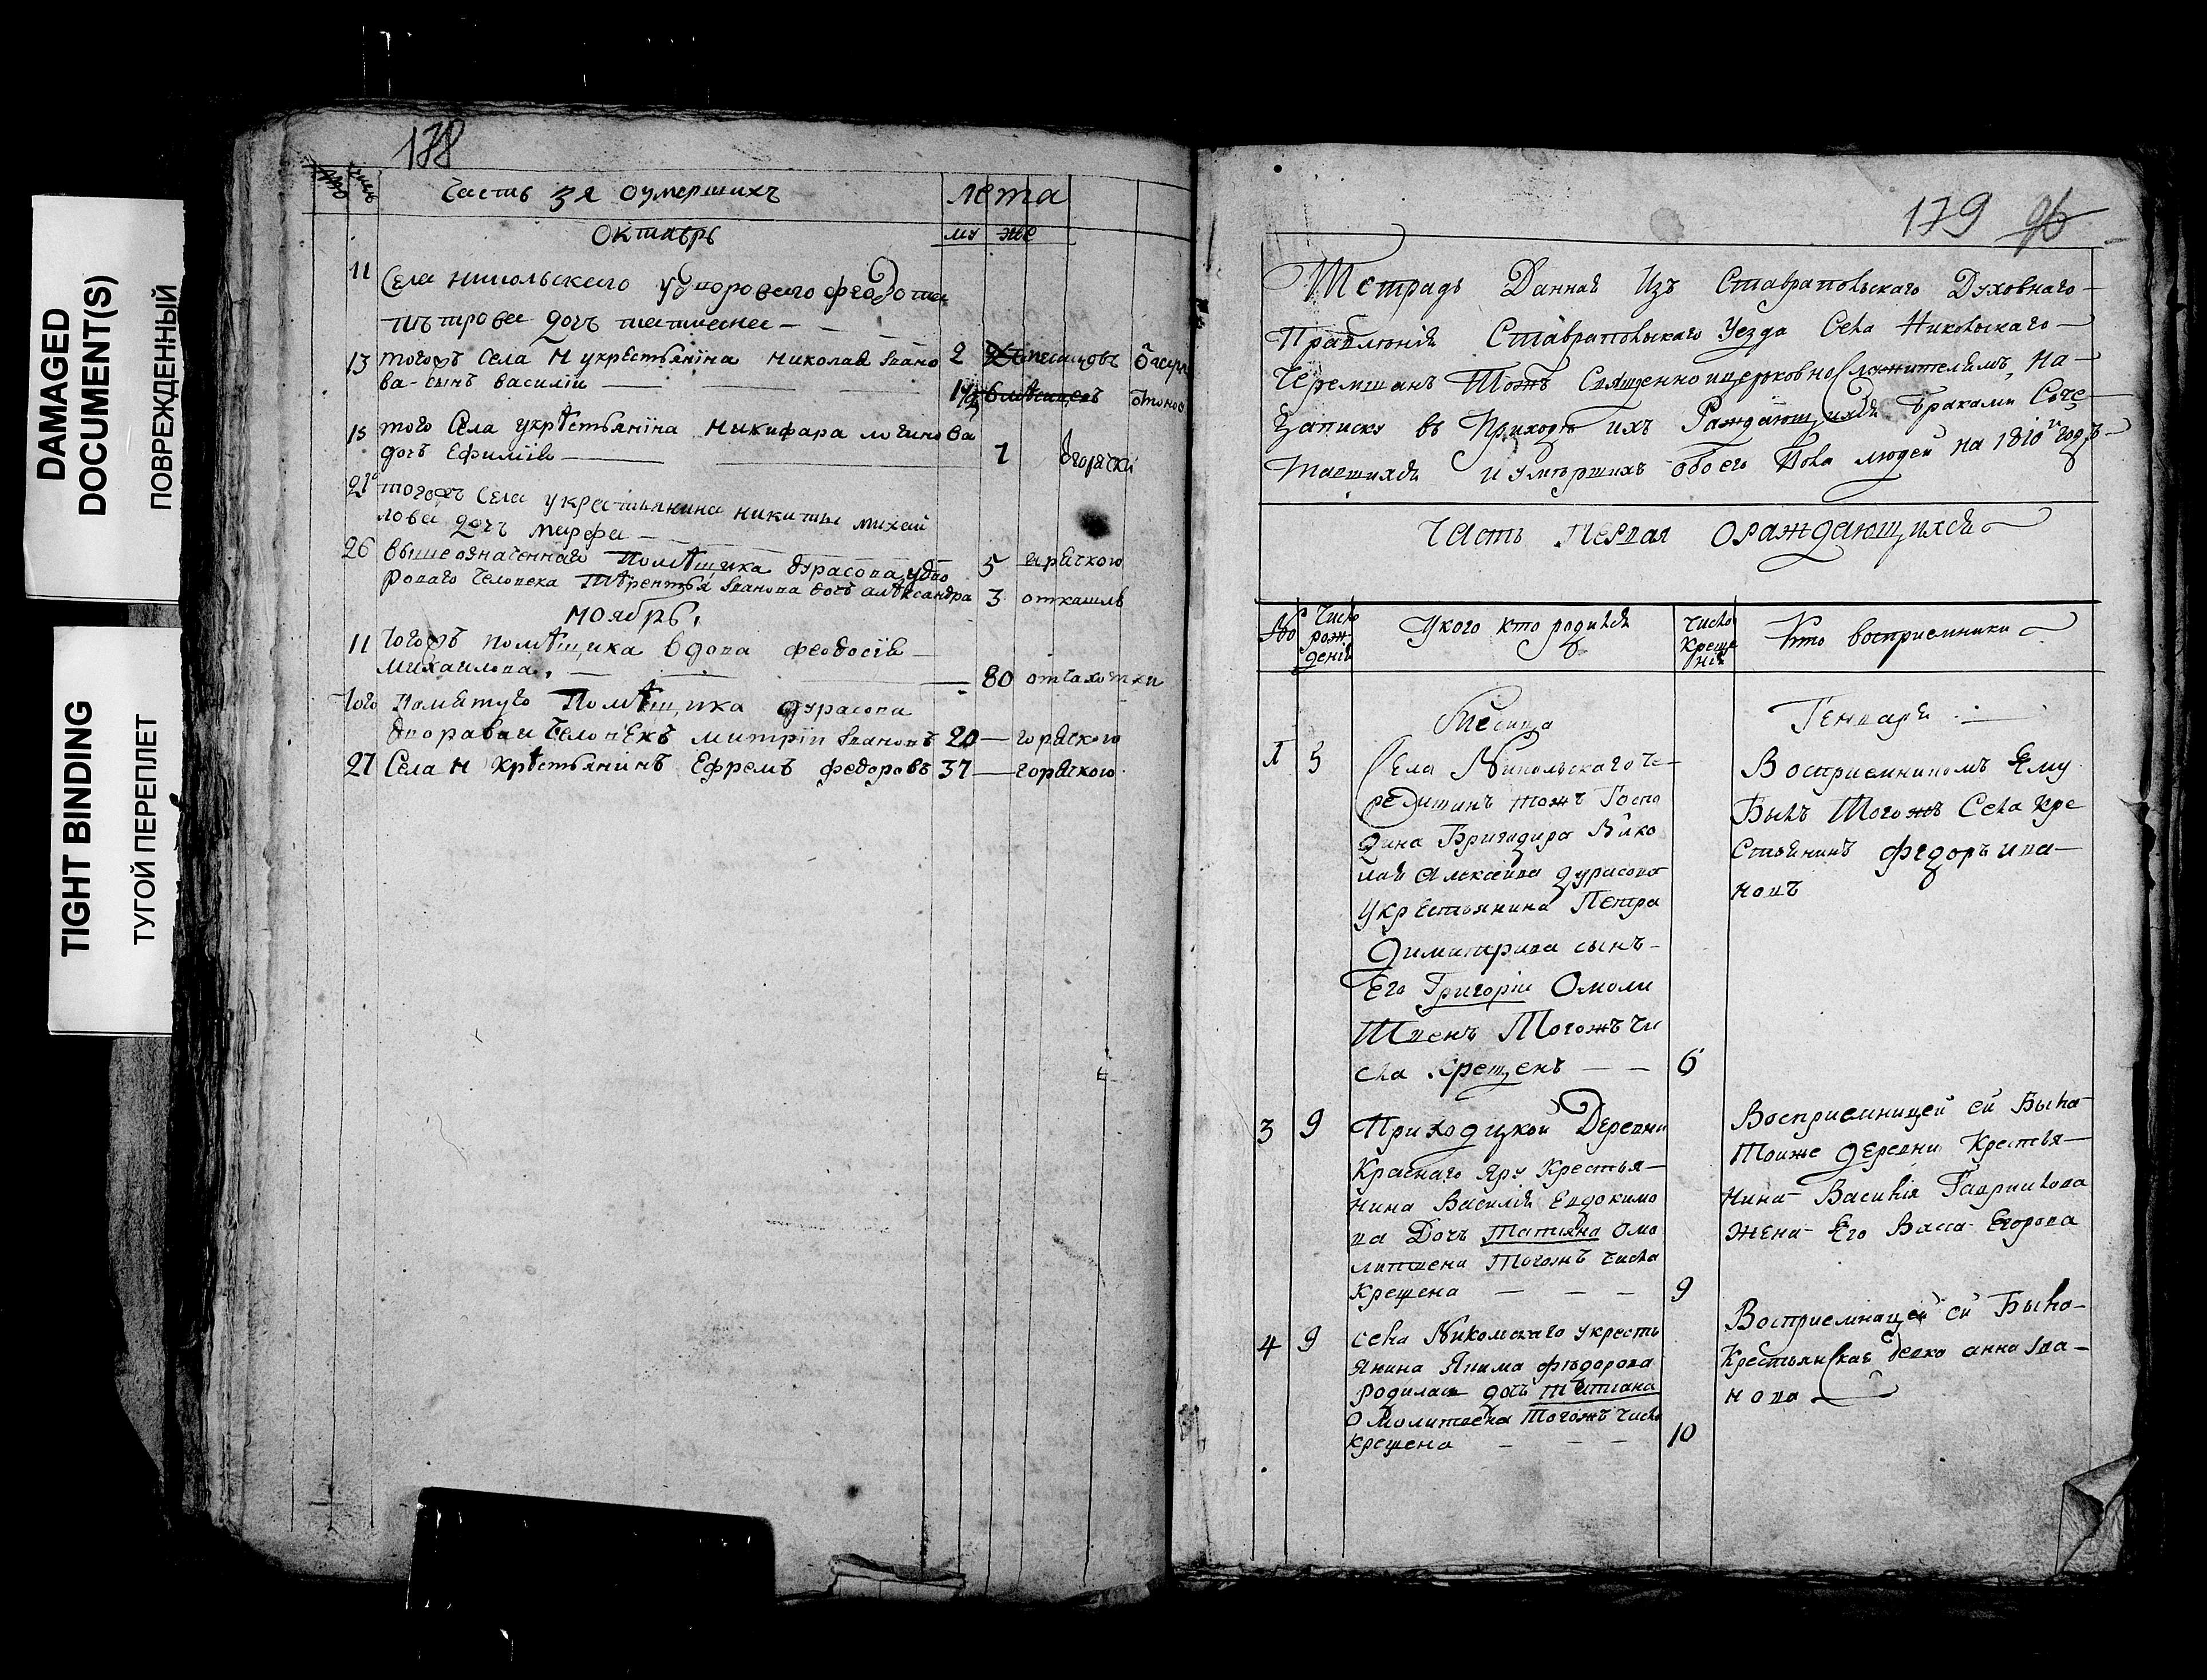 DAMAGED
DOCUMENT(S)
ПОВРЕЖДЕННЫЙ
TIGHT BINDING
ТУГОЙ ПЕРЕПЛЕТ
178
Часть 3я оумершихъ лета
Октябрь му же
11 Села никольскаго удвороваго феодота
петрова дочь татиана
13 тогожъ села Н укрестьянина николая Ивано 2
ва сынъ василіи
15 того села укрѣстьянина Никифара логинова
дочь Ефимія 1 огорячки
21 тогожъ села укрестьянина никиты михаи
лова дочъ марфа
26 вышеозначеннаго помѣщика дурасова удво 5 игрячкою
роваго человека Тѣрентья Иванова дочь алѣксандра 3 откашля
ноябрь
11 тогожъ помѣщика вдова феодосія
михаилова 80 отчахотки
того помѣщика дурасова
дворавои человѣкъ митріи Ивановъ 20 горячкою
27 Села Н крѣстьянинъ Ефремъ федоровъ 37 горячкою
179
Тетрадь Данная Изъ Ставрапольскаго Духовнаго
Правления Ставрапольскаго Уезда Села Никольскаго
Черемшанъ Тожъ Священноицерковнослужителямъ, На
Записку въ Приходе ихъ Раждающихся браками Соче
тавшихся и умершихъ обоего Пола людей на 1810й годъ
Часть Первая Ораждающихся
№ Число рождения Укого кто родился Число крещения Кто восприемники
Месяца Генваря
1 5 Села Никольскаго Че
ремшанъ тожъ Госпо
дина Бригадира Нико
лая Алексеива дурасова
укрестьянина Петра
Димитрива сынъ
Его Григоріи Омоли
твенъ Тогожъ чи
сла Крещенъ 6
Восприемникомъ Ему
Былъ Тогожъ Села кре
стьянинъ федоръ ива
новъ
3 9 Приходцкой Деревни
Краснаго яру Крестья
нина Василия Евдокимо
ва Дочь Татияна Омо
литвена Тогожъ числа
Крещена 9
Восприемницей ей Была
Тоиже деревни Крестья
нина Василія Гаврилова
жена Его Васса Егорова
4 9 села Никольскаго укресть
янина Якима фѣдорова
родилась дочь татиана
Омолитвена Тогожъ числа
крещена 10
Восприемницей ей Была
Крестьянская девка анна Ива
нова